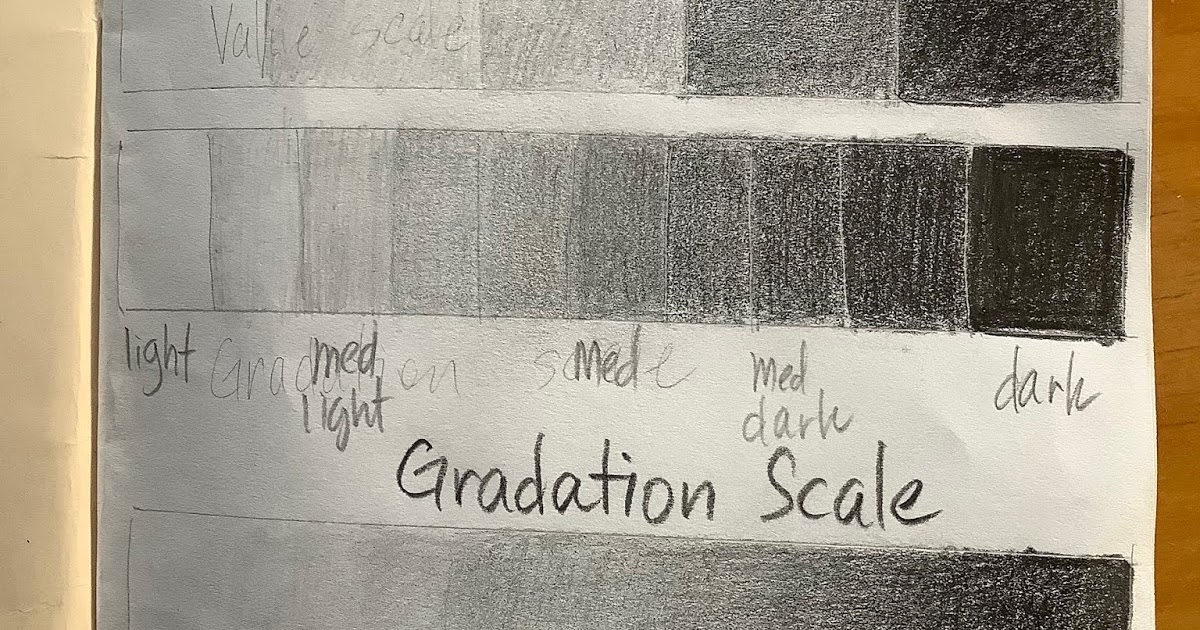 Value scale
light Gradation scale
med light
Med
med dark
dark
Gradation Scale